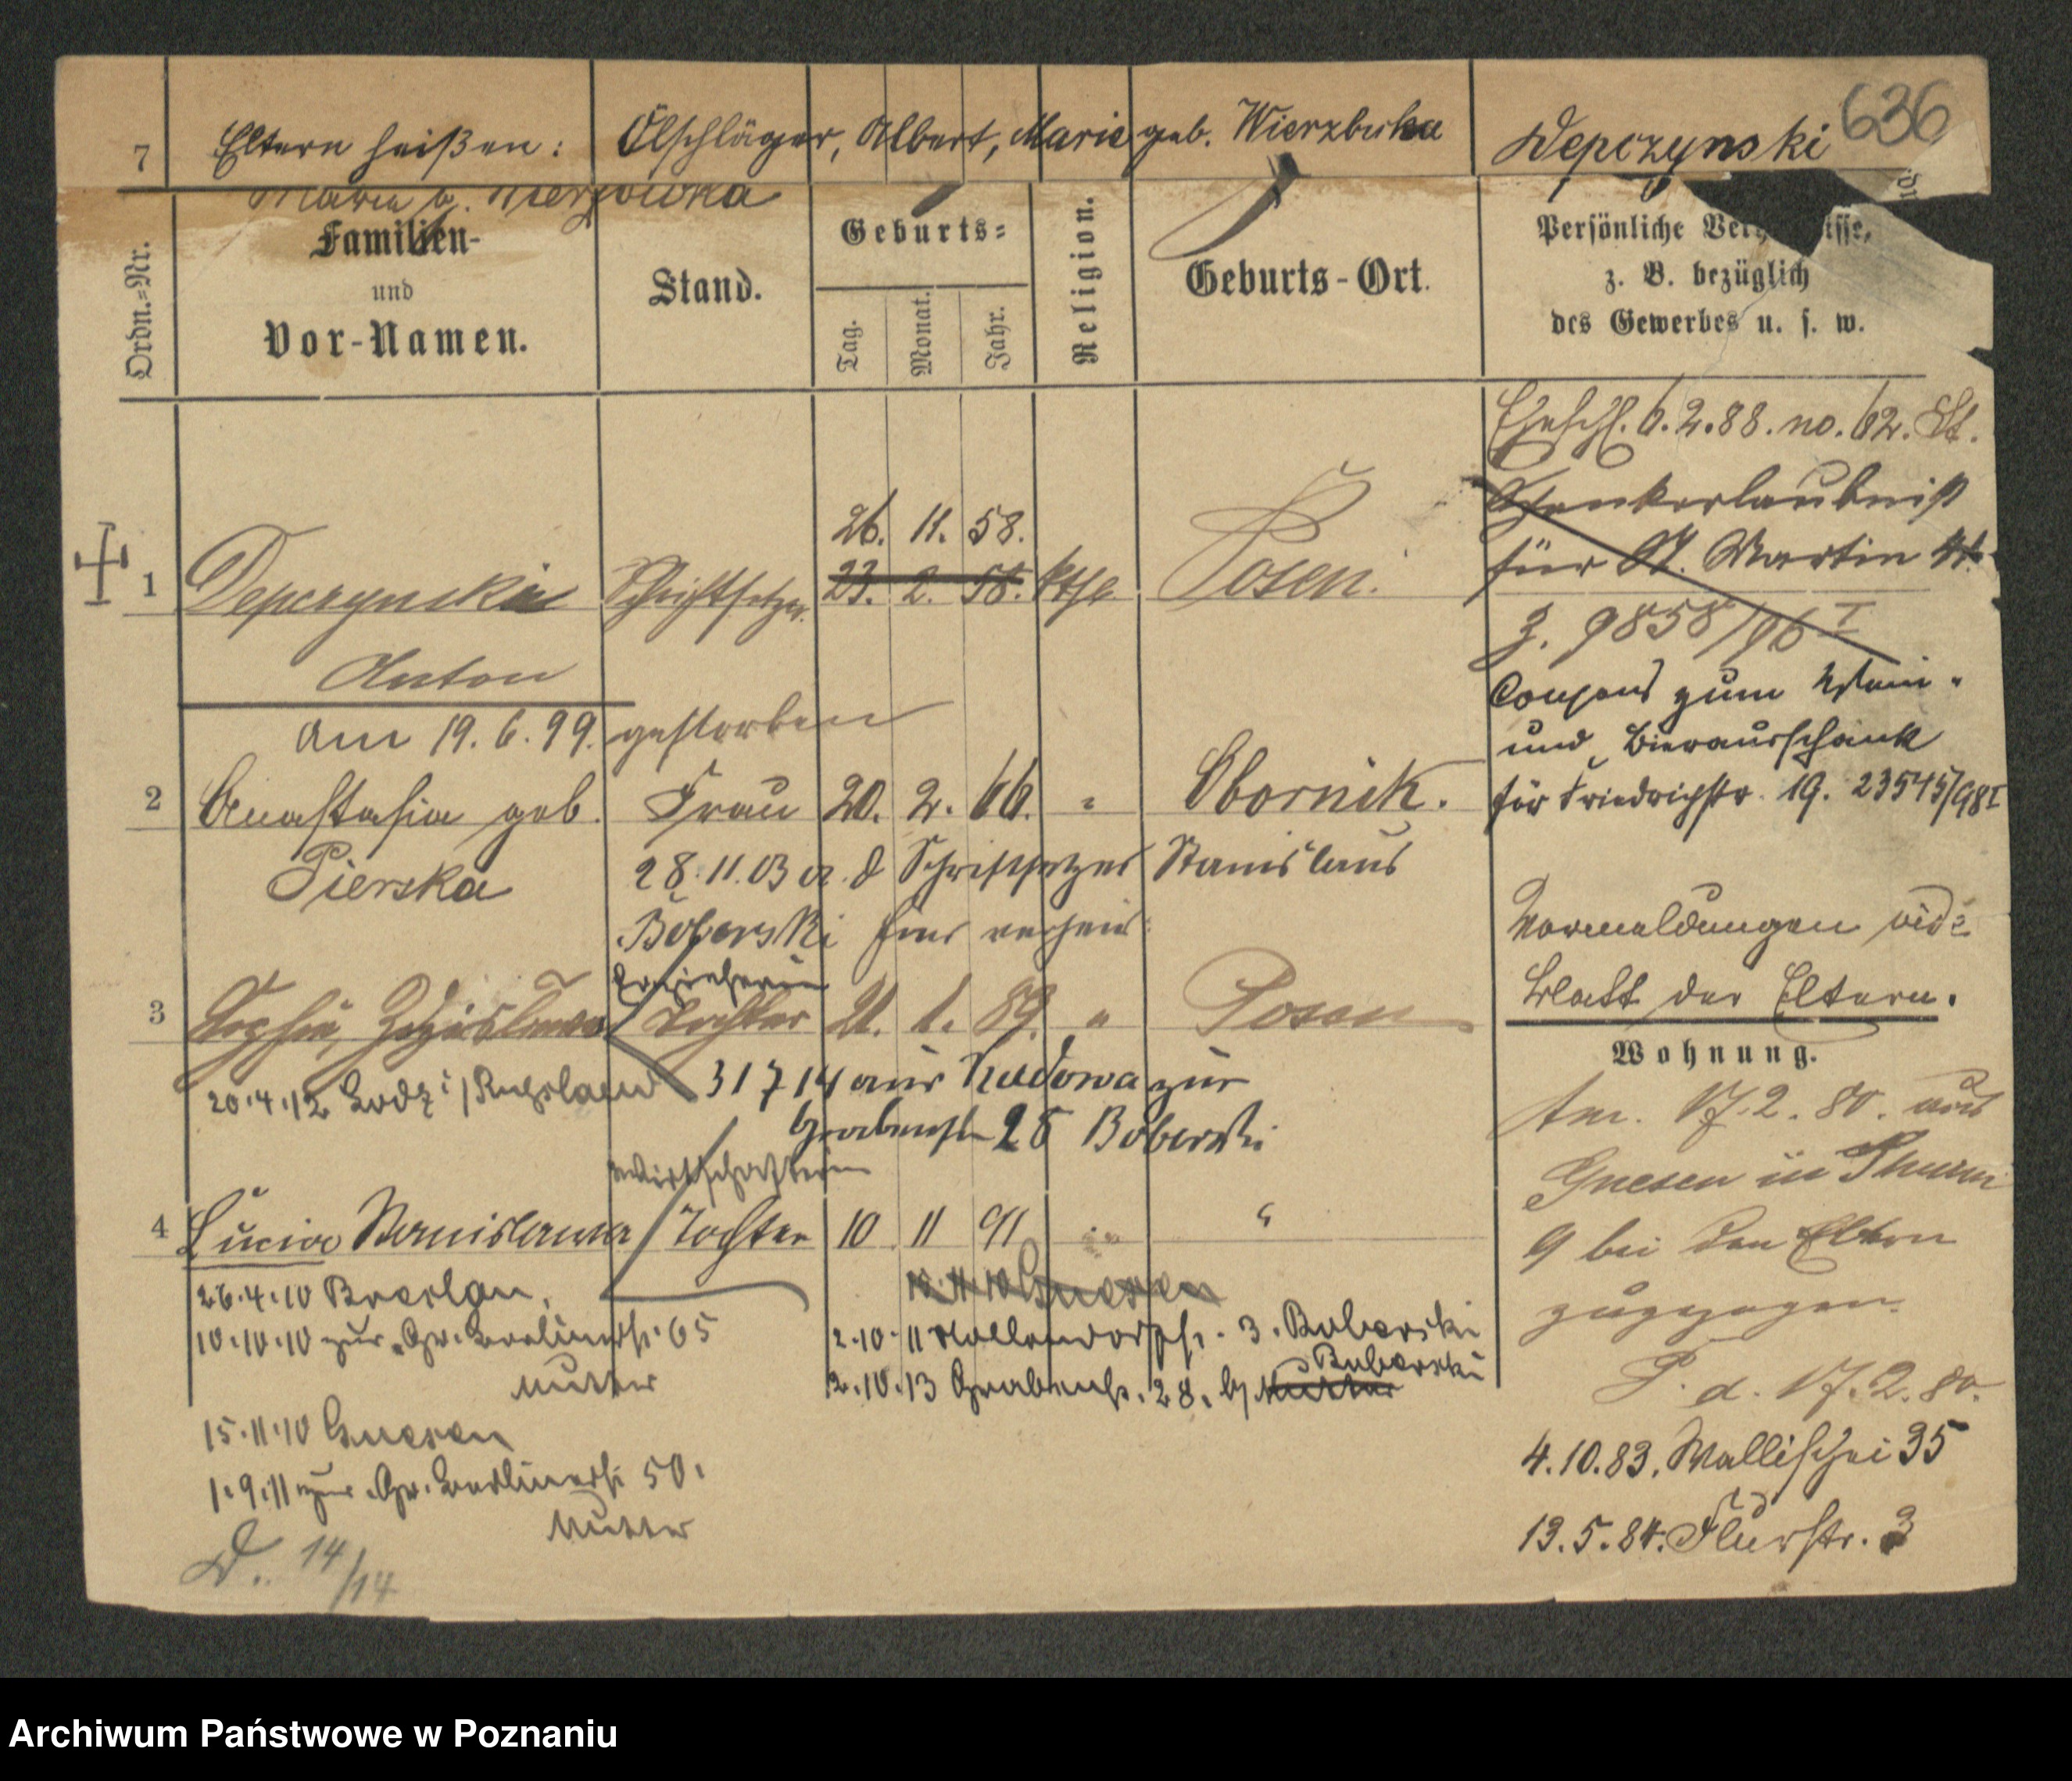 636
7 Eltern heißen: Ölschläger, Albert, Marie geb. Wierzbicka Depczynski
Maria g. Wierzbicka
Ordn.=Nr.
Familien-
und
Vor-Namen.
Stand.
Geburts=
Tag.
Monat.
Jahr.
Religion.
Geburts-Ort.
Persönliche
z. B. bezüglich
des Gewerbes u. s. w.
Eheschl. 6.2.88. no. 62. St.
Schankerlaubniß
für St. Martin
Z. 9858/96 I
Coupens zum Wein-
und Bierausschank
für Friedrichstr. 19. 23545/98 I
26. 11. 58.
1 Depczynski Schriftsetzer. 23. 2. 58. kth. Posen.
Anton
am 19.6.99. gestorben
2 Anastasia geb. Frau 20. 2. 66. " Obornik.
Pierska
28.11.03 a. d Schriftsetzer Stanislaus
Boberski hier verheir:
Vormeldungen vide
Blatt der Eltern.
Erzieherin
3 Sophie, Tochter 21. 1. 89. " Posen
20.4.12 Lodz i/Russland 31 7 14 aus Kudowa zur
Grabenstr 28 Boberski
Wirtschafterin
4 Lucia Stanislawa Tochter 10 11 91 " "
26.4.10 Breslau.
10.11.10 Gnesen
10.10.10 zur. Gr. Berlinerstr. 65
Mutter
2.10.11 Hollendorfstr. 3. Boberski
2.10.13 Grabenstr. 28. b/ Mutter Boberski
15.11.10 Gnesen
1.9.11 zur. Gr. Berlinerstr 50.
Mutter
D. 14/14
Wohnung.
Am. 17.2.80. aus
Gnesen in Thurm
9 bei den Eltern
zugezogen.
P. a. 17.2.80.
4.10.83. Wallischei 35
13.5.84. Flurstr. 3
Archiwum Państwowe w Poznaniu